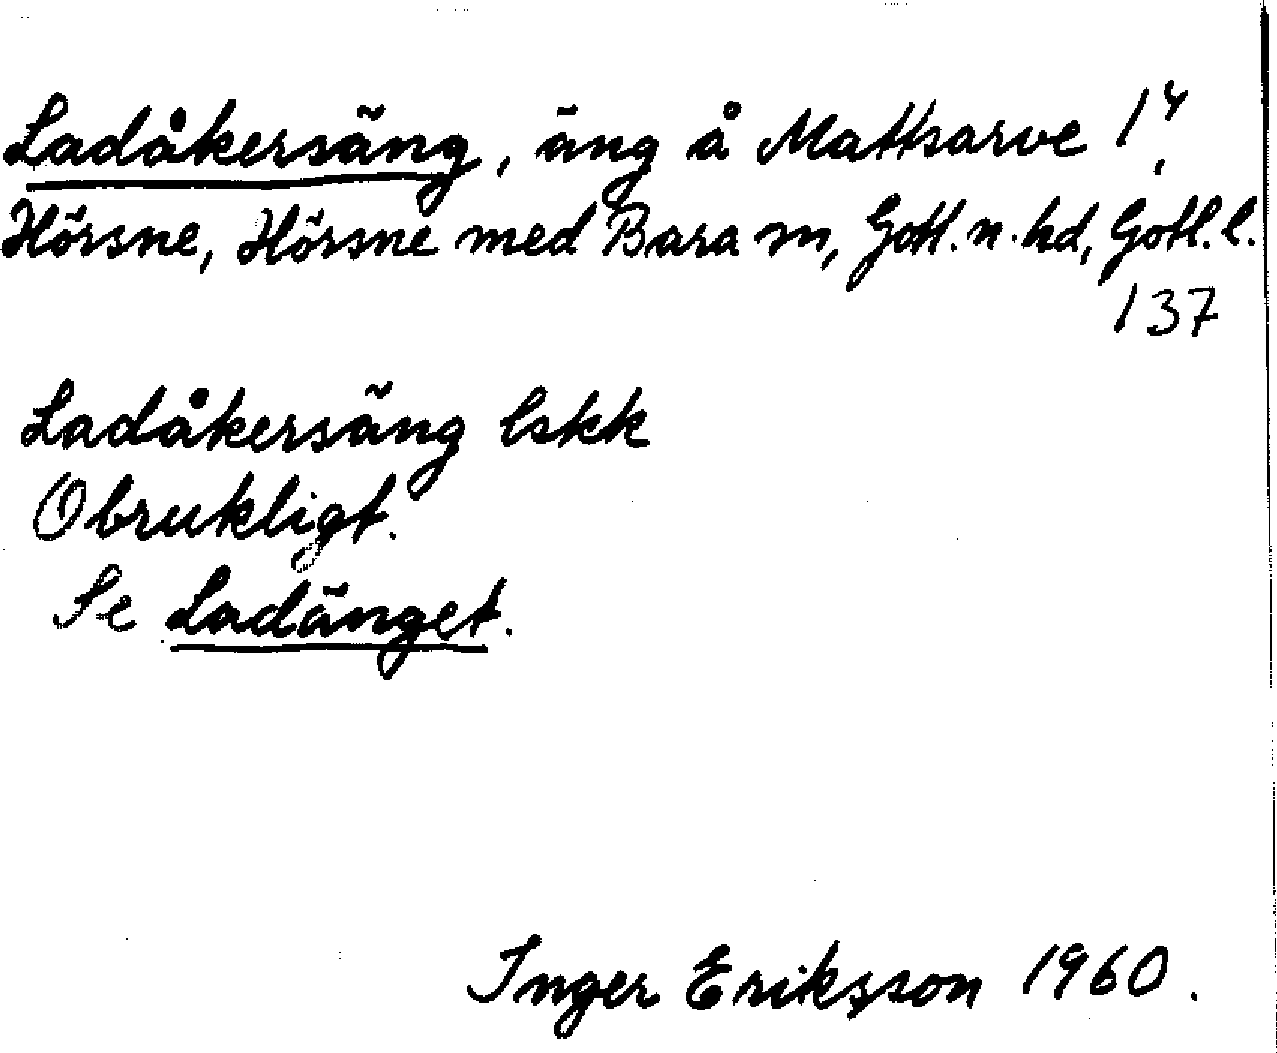 Ladåkersäng, äng å Mattsarve 1⁴,
Hörsne, Hörsne med Bara sn, Gotl. n. hd, Gotl. l.
137
Ladåkersäng lskk
Obrukligt.
Se Ladänget.
Inger Eriksson 1960.